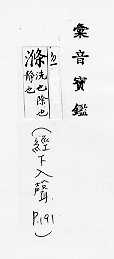 彙音寶鑑
滌
洗也除也
靜也
(經下入聲 P.191)